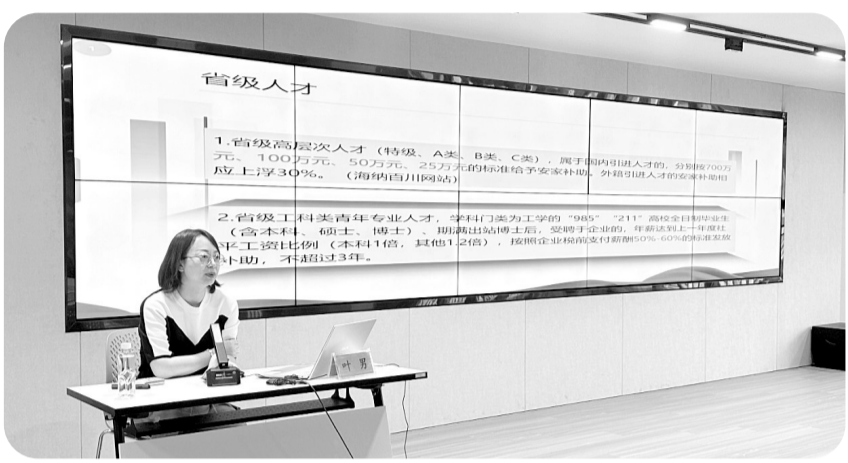 省级人才
1.省级高层次人才（特级、A类、B类、C类），属于国内引进人才的，分别按700万
元、100万元、50万元、25万元的标准给予安家补助。外籍引进人才的安家补助相
应上浮30%。（海纳百川网站）
2.省级工科类青年专业人才，学科门类为工学的“985”“211”高校全日制毕业生
（含本科、硕士、博士）、期满出站博士后，受聘于企业的，年薪达到上一年度社
平工资比例（本科1倍，其他1.2倍），按照企业税前支付薪酬50%-60%的标准发放
补助，不超过3年。
叶 男